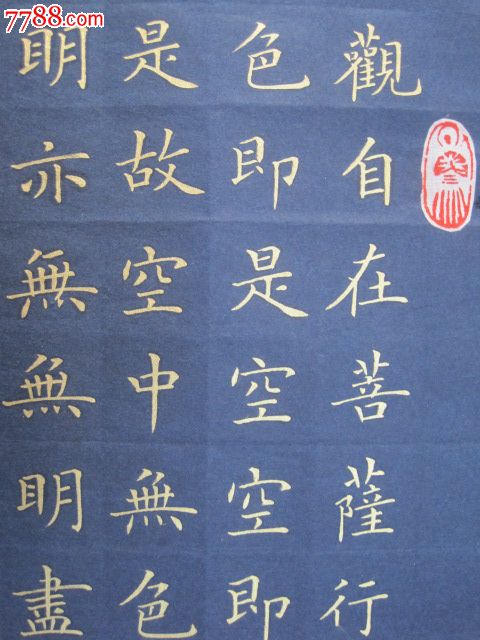 7788.com
觀自在菩薩行
色即是空空即
是故空中無色
明亦無無明盡